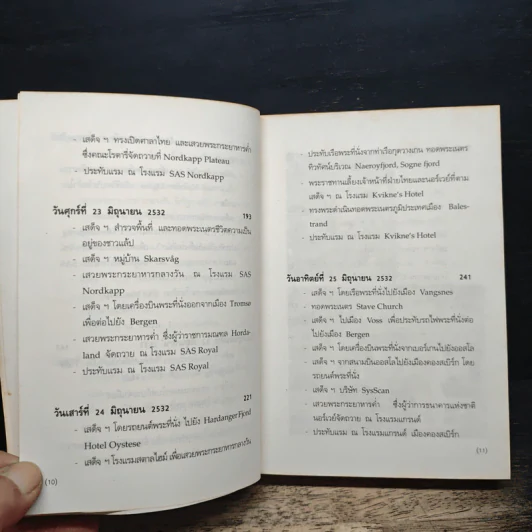 - เสด็จ ฯ ทรงเปิดศาลาไทย และเสวยพระกระยาหารค่ำ
ซึ่งคณะโรตารี่จัดถวายที่ Nordkapp Plateau
- ประทับแรม ณ โรงแรม SAS Nordkapp
วันศุกร์ที่ 23 มิถุนายน 2532 193
- เสด็จ ฯ สำรวจพื้นที่ และทอดพระเนตรชีวิตความเป็น
อยู่ของชาวแล้ป
- เสด็จ ฯ หมู่บ้าน Skarsvåg
- เสวยพระกระยาหารกลางวัน ณ โรงแรม SAS
Nordkapp
- เสด็จ ฯ โดยเครื่องบินพระที่นั่งออกจากเมือง Tromsø
เพื่อต่อไปยัง Bergen
- เสวยพระกระยาหารค่ำ ซึ่งผู้ว่าราชการมณฑล Horda-
land จัดถวาย ณ โรงแรม SAS Royal
- ประทับแรม ณ โรงแรม SAS Royal
วันเสาร์ที่ 24 มิถุนายน 2532 221
- เสด็จ ฯ โดยรถยนต์พระที่นั่ง ไปยัง Hardanger Fjord
Hotel Oystese
- เสด็จ ฯ โรงแรมสตาลไฮม์ เพื่อเสวยพระกระยาหารกลางวัน
(10)
- ประทับเรือพระที่นั่งจากท่าเรือกุดวางเกน ทอดพระเนตร
ทิวทัศน์บริเวณ Naeroyfjord, Sogne fjord
- พระราชทานเลี้ยงเจ้าหน้าที่ฝ่ายไทยและนอร์เวย์ที่ตาม
เสด็จ ฯ ณ โรงแรม Kvikne's Hotel
- ทรงพระดำเนินทอดพระเนตรภูมิประเทศเมือง Bales-
trand
- ประทับแรม ณ โรงแรม Kvikne's Hotel
วันอาทิตย์ที่ 25 มิถุนายน 2532 241
- เสด็จ ฯ โดยเรือพระที่นั่งไปยังเมือง Vangsnes
- ทอดพระเนตร Stave Church
- เสด็จ ฯ ไปเมือง Voss เพื่อประทับรถไฟพระที่นั่งต่อ
ไปยังเมือง Bergen
- เสด็จ ฯ โดยเครื่องบินพระที่นั่งจากเบอร์เกนไปยังออสโล
- เสด็จ ฯ จากสนามบินออสโลไปยังเมืองคองสเบิร์ก โดย
รถยนต์พระที่นั่ง
- เสด็จ ฯ บริษัท SysScan
- เสวยพระกระยาหารค่ำ ซึ่งผู้ว่าการธนาคารแห่งชาติ
นอร์เวย์จัดถวาย ณ โรงแรมแกรนด์
- ประทับแรม ณ โรงแรมแกรนด์ เมืองคองสเบิร์ก
(11)